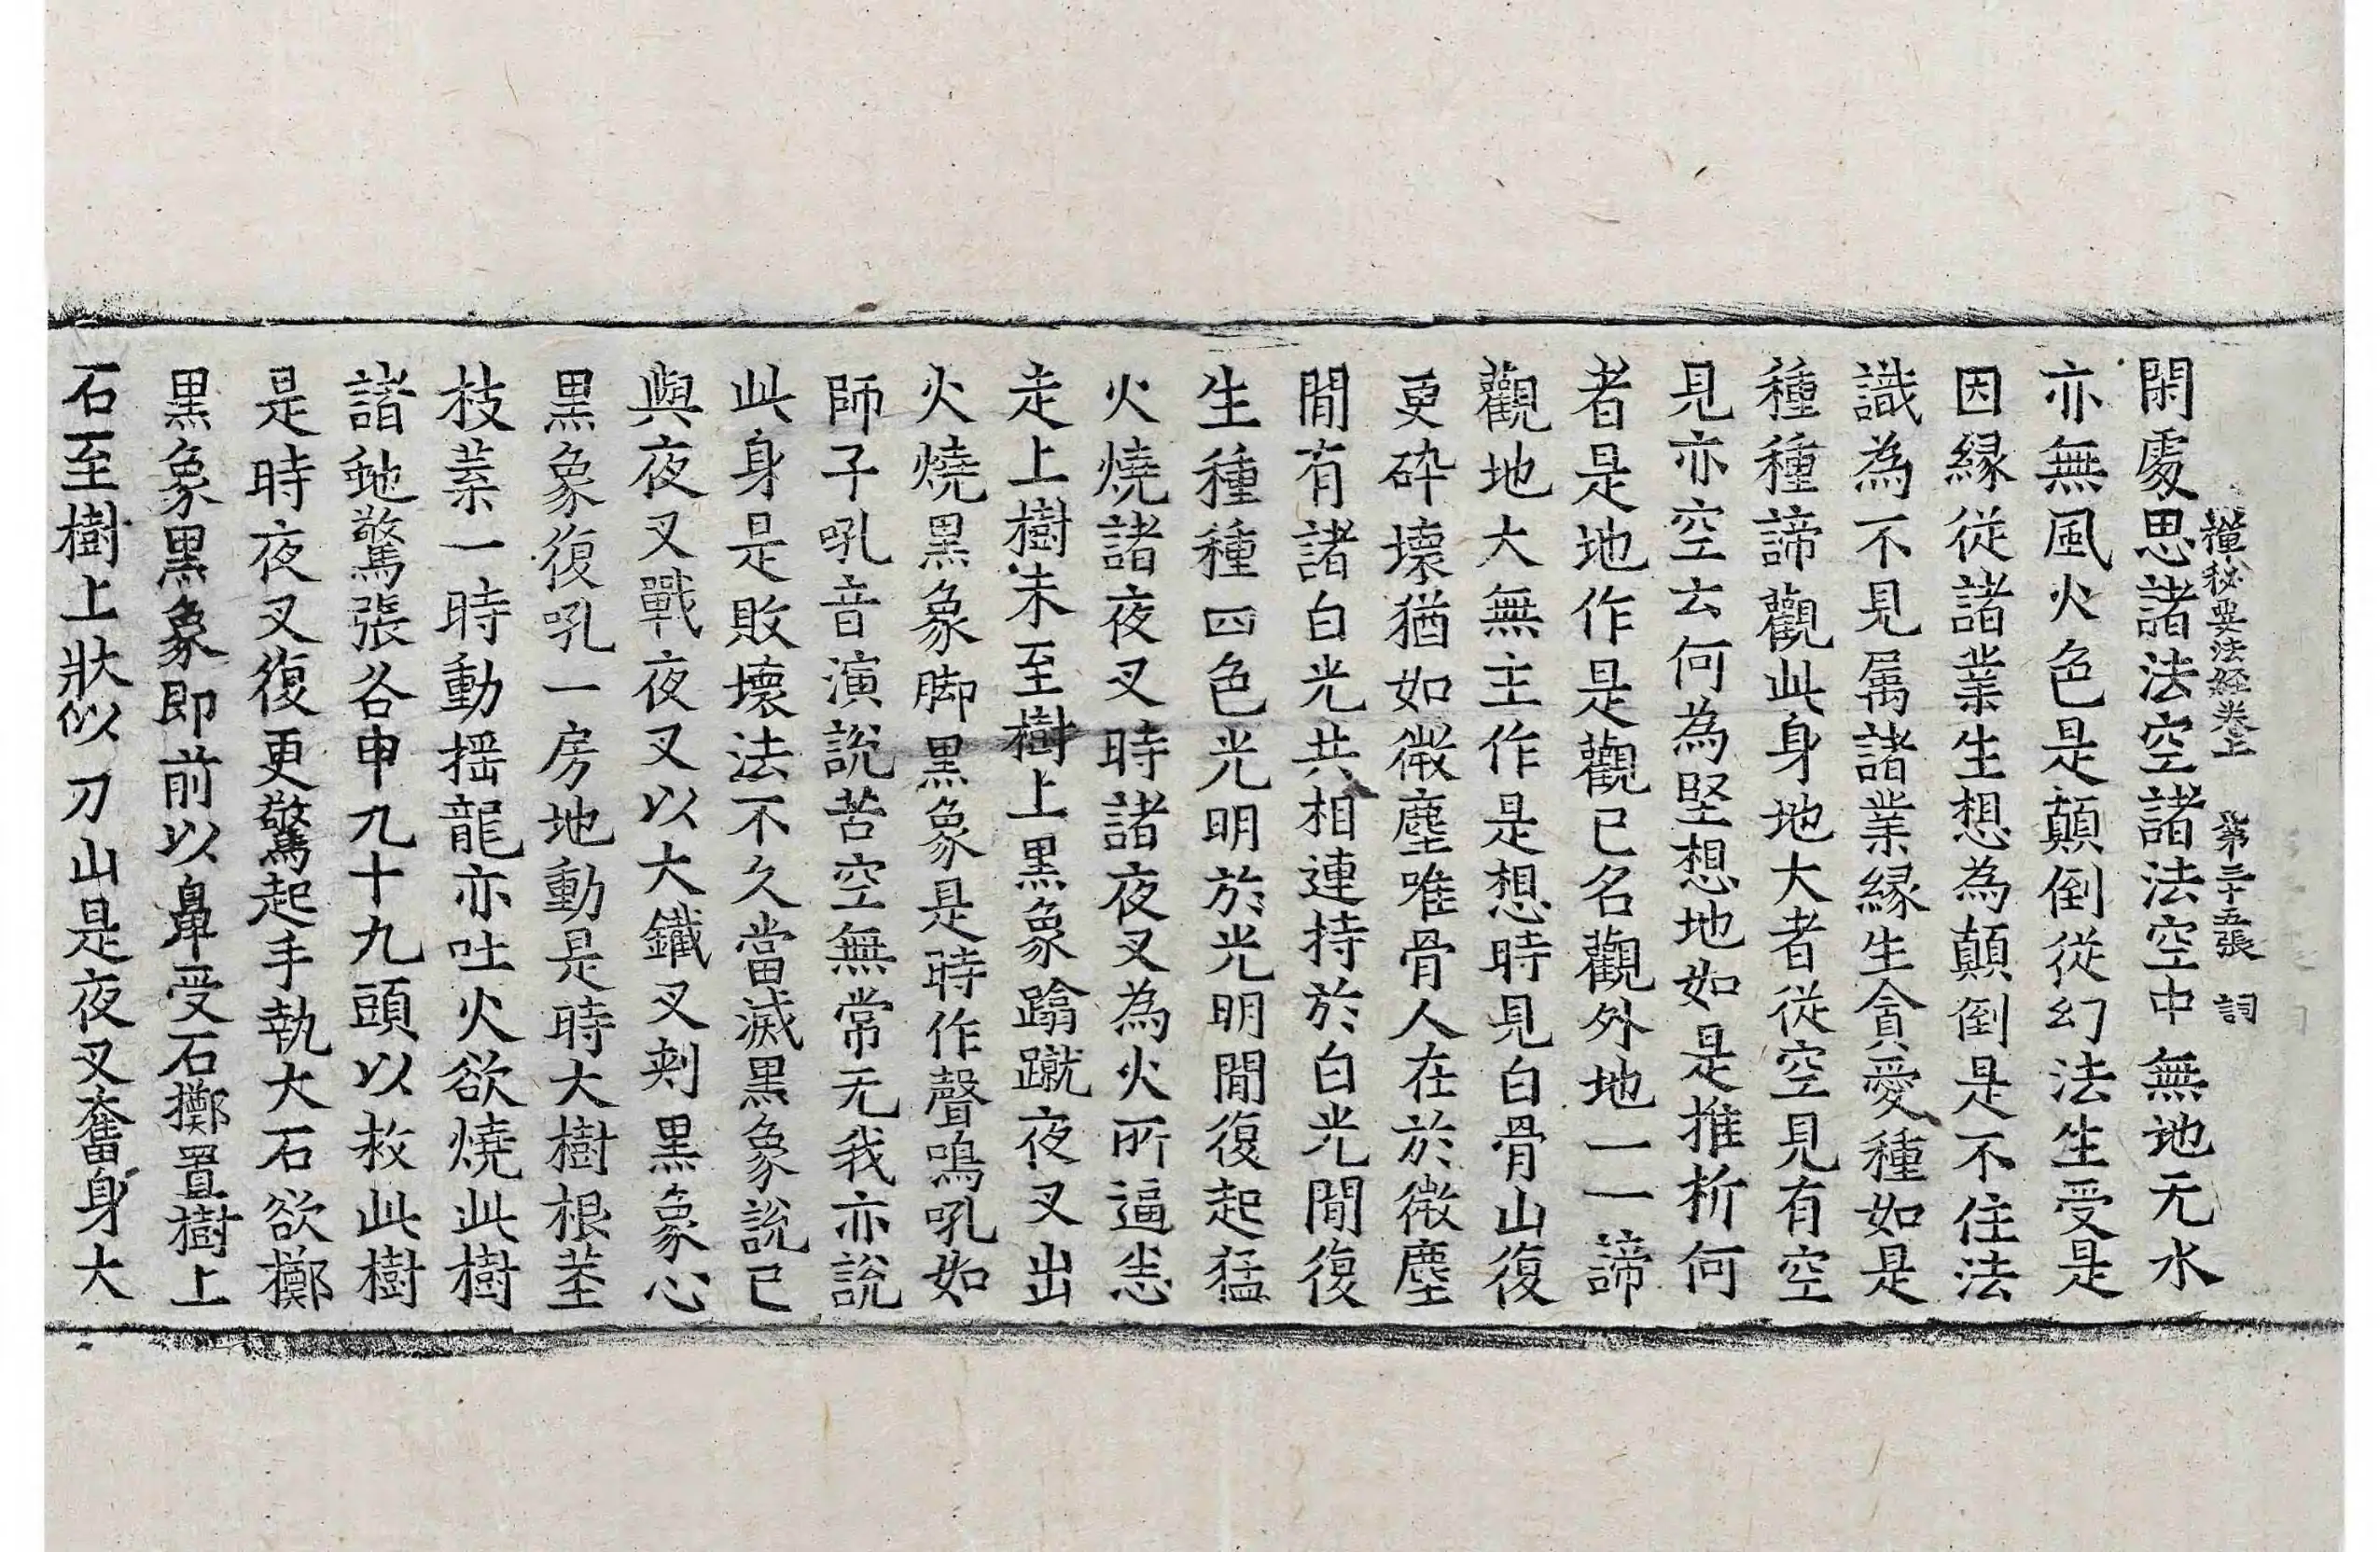 禪秘要法経卷上 第三十五張 詞
閑處思諸法空諸法空中無地无水
亦無風火色是顛倒從幻法生受是
因縁從諸業生想為顛倒是不住法
識為不見屬諸業縁生貪愛種如是
種種諦觀此身地大者從空見有空
見亦空云何為堅想地如是推析何
者是地作是觀已名觀外地一一諦
觀地大無主作是想時見白骨山復
更碎壞猶如微塵唯骨人在於微塵
閒有諸白光共相連持於白光閒復
生種種四色光明於光明閒復起猛
火燒諸夜叉時諸夜叉為火所逼恙
走上樹未至樹上黒象蹹蹴夜叉出
火燒黒象脚黒象是時作聲鳴吼如
師子吼音演說苦空無常无我亦說
此身是敗壞法不久當滅黒象說已
與夜叉戰夜叉以大鐵叉刾黒象心
黒象復吼一房地動是時大樹根莖
枝葉一時動揺龍亦吐火欲燒此樹
諸虵驚張各申九十九頭以救此樹
是時夜叉復更驚起手執大石欲擲
黒象黒象即前以鼻受石擲置樹上
石至樹上狀似刀山是夜叉奮身大